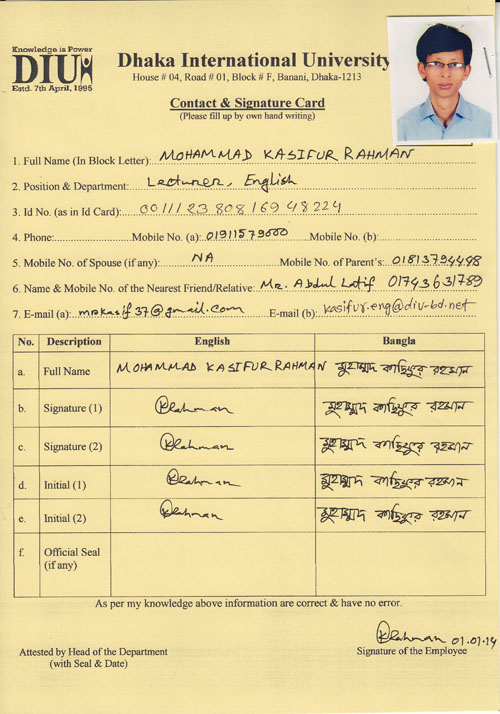 Knowledge is Power
DIU
Estd. 7th April, 1995
Dhaka International University
House # 04, Road # 01, Block # F, Banani, Dhaka-1213
Contact & Signature Card
(Please fill up by own hand writing)
1. Full Name (In Block Letter): MOHAMMAD KASIFUR RAHMAN
2. Position & Department: Lecturer, English
3. Id No. (as in Id Card): 00111 23 808 169 48224
4. Phone: Mobile No. (a): 01911579000 Mobile No. (b):
5. Mobile No. of Spouse (if any): NA Mobile No. of Parent's: 01813794498
6. Name & Mobile No. of the Nearest Friend/Relative: Mr. Abdul Latif 01743631789
7. E-mail (a): mrkasif37@gmail.com E-mail (b): kasifur.eng@diu-bd.net
No. Description English Bangla
a. Full Name MOHAMMAD KASIFUR RAHMAN মুহাম্মদ কাছিফুর রহমান
b. Signature (1) KRahman মুহাম্মদ কাছিফুর রহমান
c. Signature (2) KRahman মুহাম্মদ কাছিফুর রহমান
d. Initial (1) KRahman মুহাম্মদ কাছিফুর রহমান
e. Initial (2) KRahman মুহাম্মদ কাছিফুর রহমান
f. Official Seal
(if any)
As per my knowledge above information are correct & have no error.
KRahman 01.01.14
Attested by Head of the Department Signature of the Employee
(with Seal & Date)